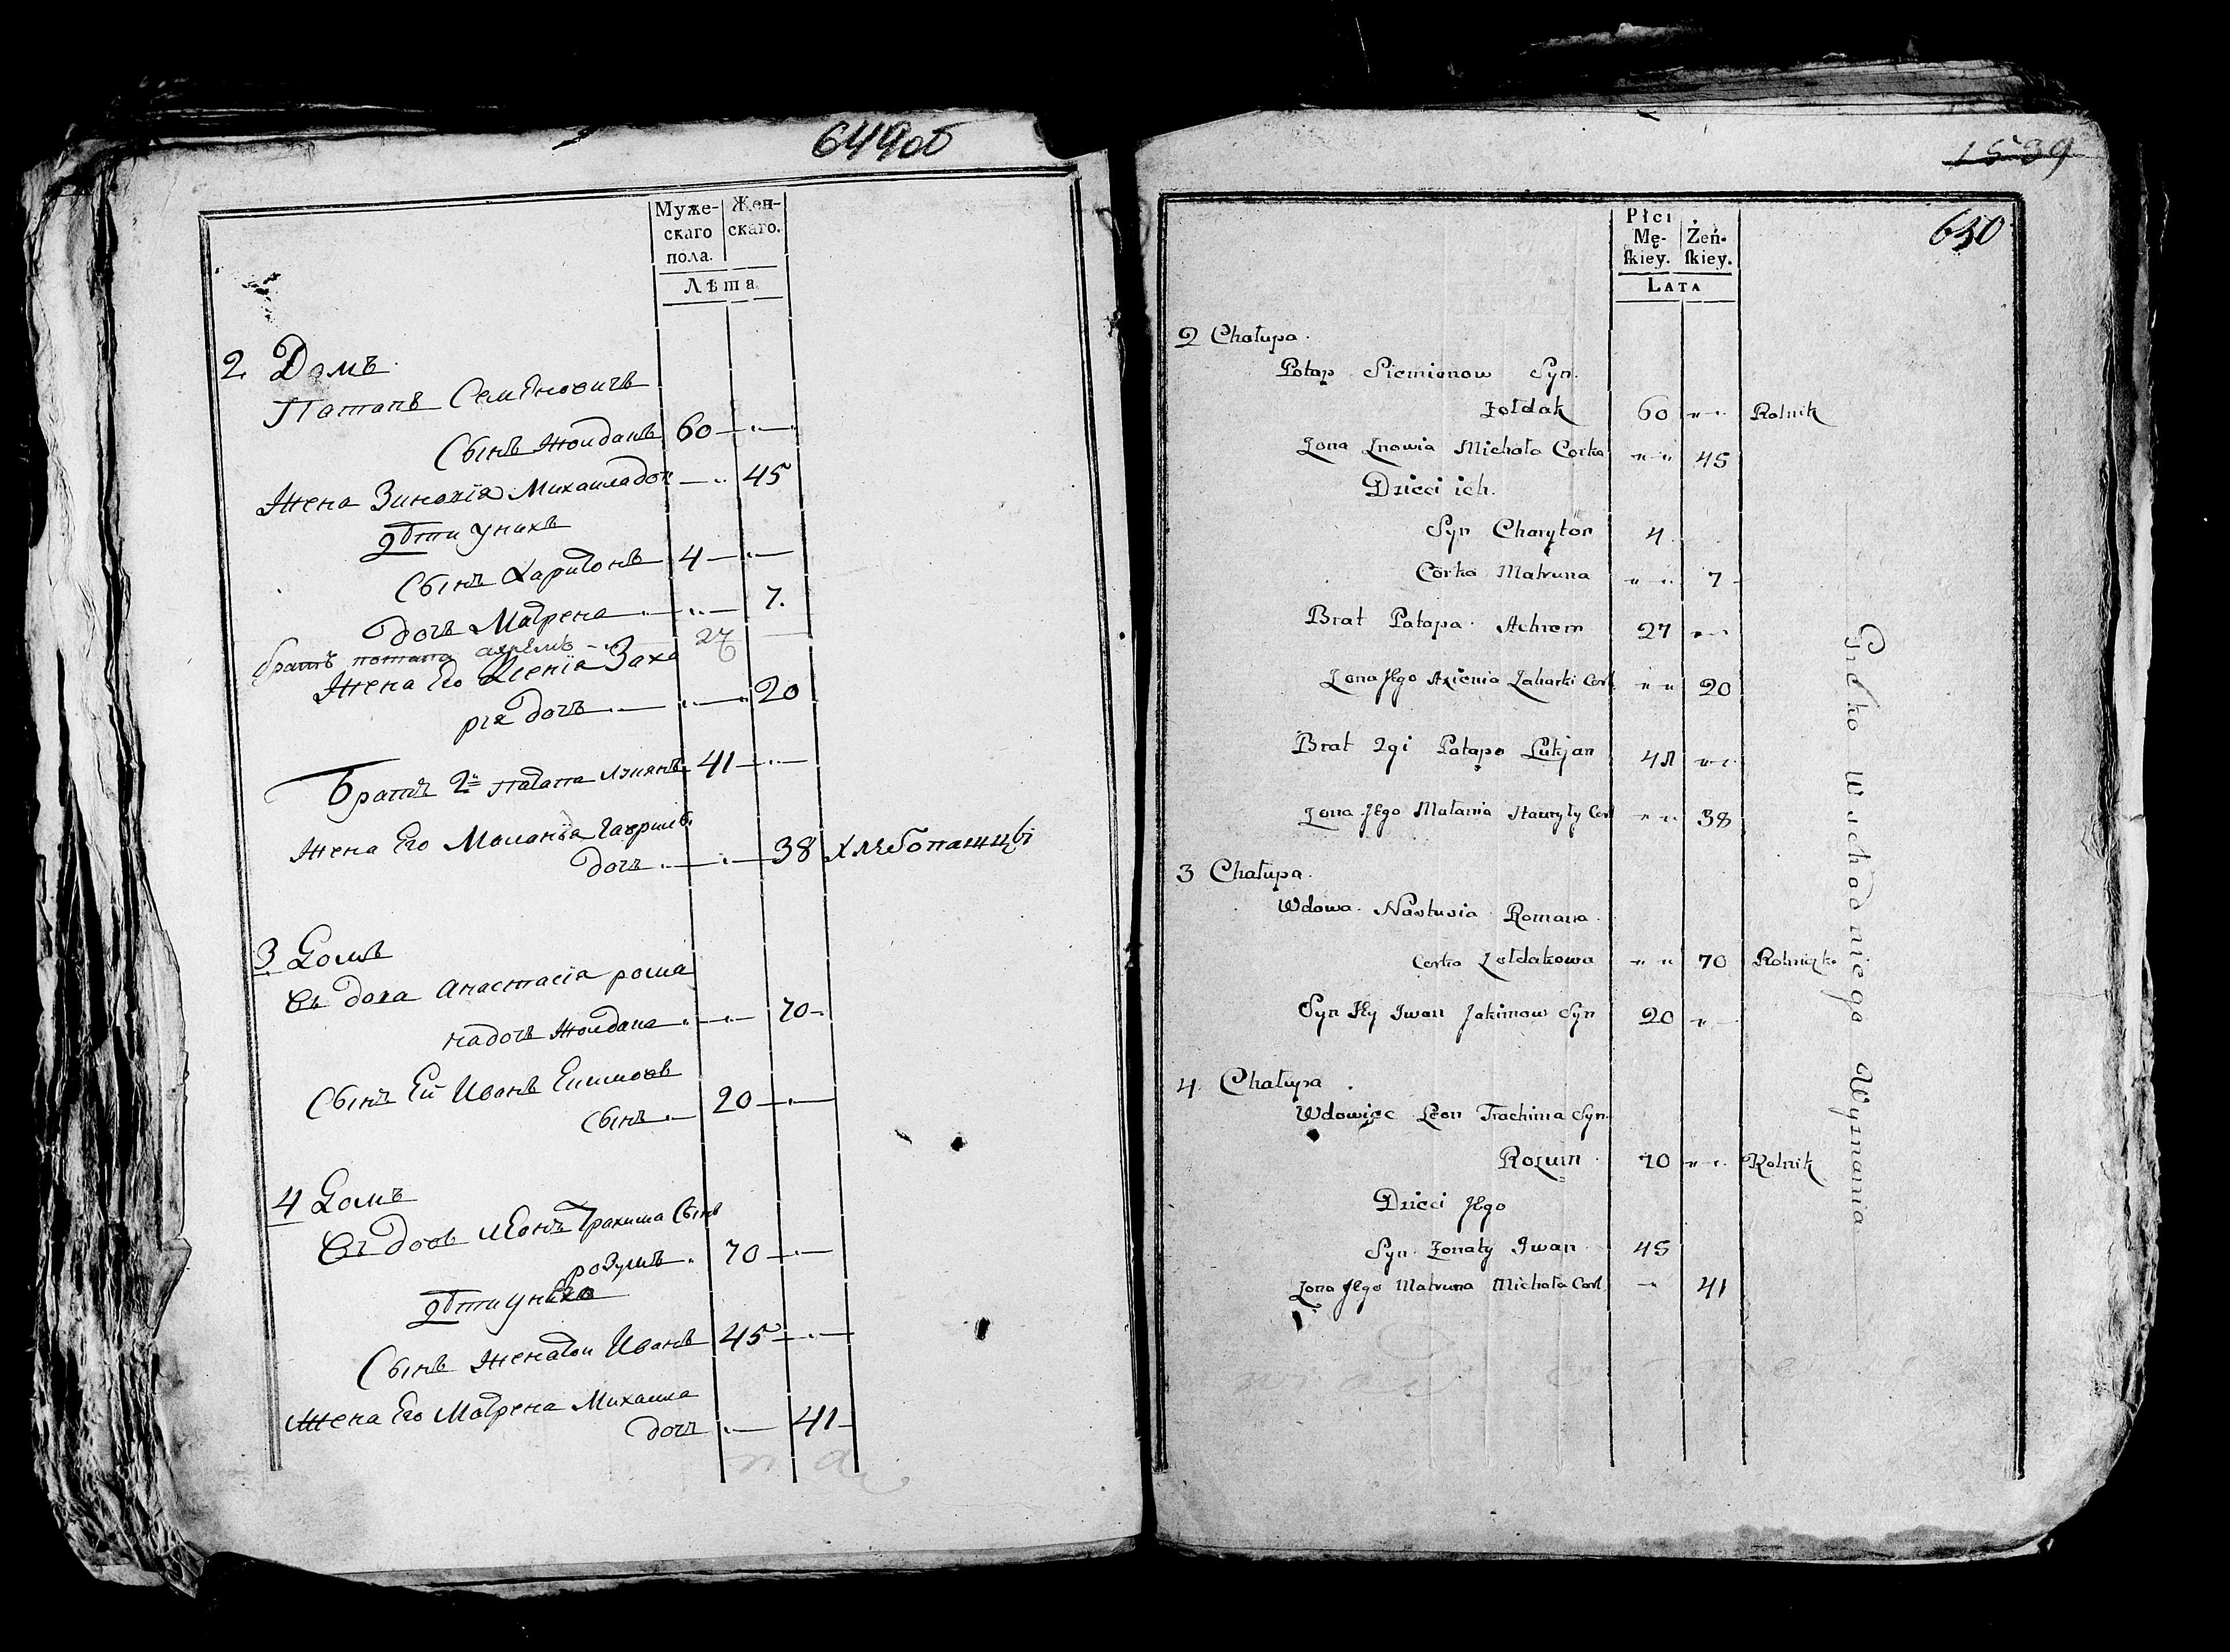 649об
Муже-
скаго
пола.
Жен-
скаго.
Лѣта
2. Домъ
Патапъ Семѣновичъ
Сынъ Жолдакъ 60
Жена Зиновія Михаила доч 45
дѣти унихъ
Сынъ Харитонъ 4
дочъ Матрена 7.
братъ потапа ахремъ 27
Жена Его Ксенія Заха
рія дочъ 20
Братъ 2й Патапа Лукянъ 41
Жена Его Маланья Гаврил.
дочъ 38 Хлѣбопашцы
3 Домъ
Въ дова Анастасія рома
на дочъ Жолдака 70
Сынъ Ей Иванъ Екимовъ
Сынъ 20
4 Домъ
Въ довъ Леонъ Трахима Сынъ
розумъ 70
дѣти унихъ
Сынъ Женатой Иванъ 45
Жена Его Матрена Михаила
дочъ 41
1539
650
Płci
Mę-
ſkiey.
Żeń-
ſkiey.
Lata
2 Chałupa.
Potap Siemionow Syn.
Żołdak 60 Rolnik
Żona Znowia Michała Corka 45
Dzieci ich.
Syn Charyton 4
Córka Matruna 7
Brat Patapa Achrem 27
Żona Jego Axienia Zaharki Cork 20
Brat 2gi Patapa Łukjan 41
Żona Jego Małania Hawryły Cork 38
3 Chałupa.
Wdowa Nastusia Romana
Corka Żołdakowa 70 Rolniczk
Syn Jey Iwan Jakimow Syn 20
4 Chałupa
Wdowiec Leon Trachima Syn
Rozum 70 Rolnik
Dzieci Jego
Syn Żonaty Iwan 45
Żona Jego Matruna Michała Cork 41
Grecko Wschodniego Wyznania